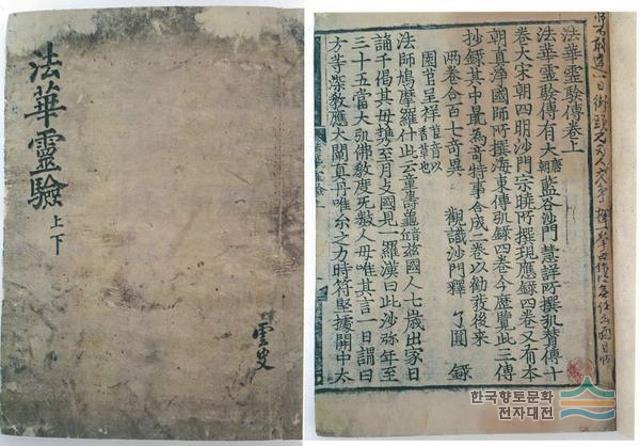 法華靈驗
上下
雲史
法華靈驗傳卷上
法華靈驗傳有大唐朝藍谷沙門慧詳所撰弘賛傳十
卷大宋朝四明沙門宗曉所撰現應錄四卷又有本
朝真淨國師所撰海東傳弘錄四卷今歷覽此三傳
抄錄其中最為奇特事合成二卷以勸我後來
兩卷合一百七奇異 觀識沙門釋 了圓 錄
園芷呈祥
法師鳩摩羅什此云童壽龜玆國人七歲出家日
誦千偈其母携至月支國見一羅漢曰此沙弥年至
三十五當大弘佛教度死數人母唯其言一日謂曰
方等深教應大闡真丹唯尒之力時符堅據關中太
한국향토문화
전자대전